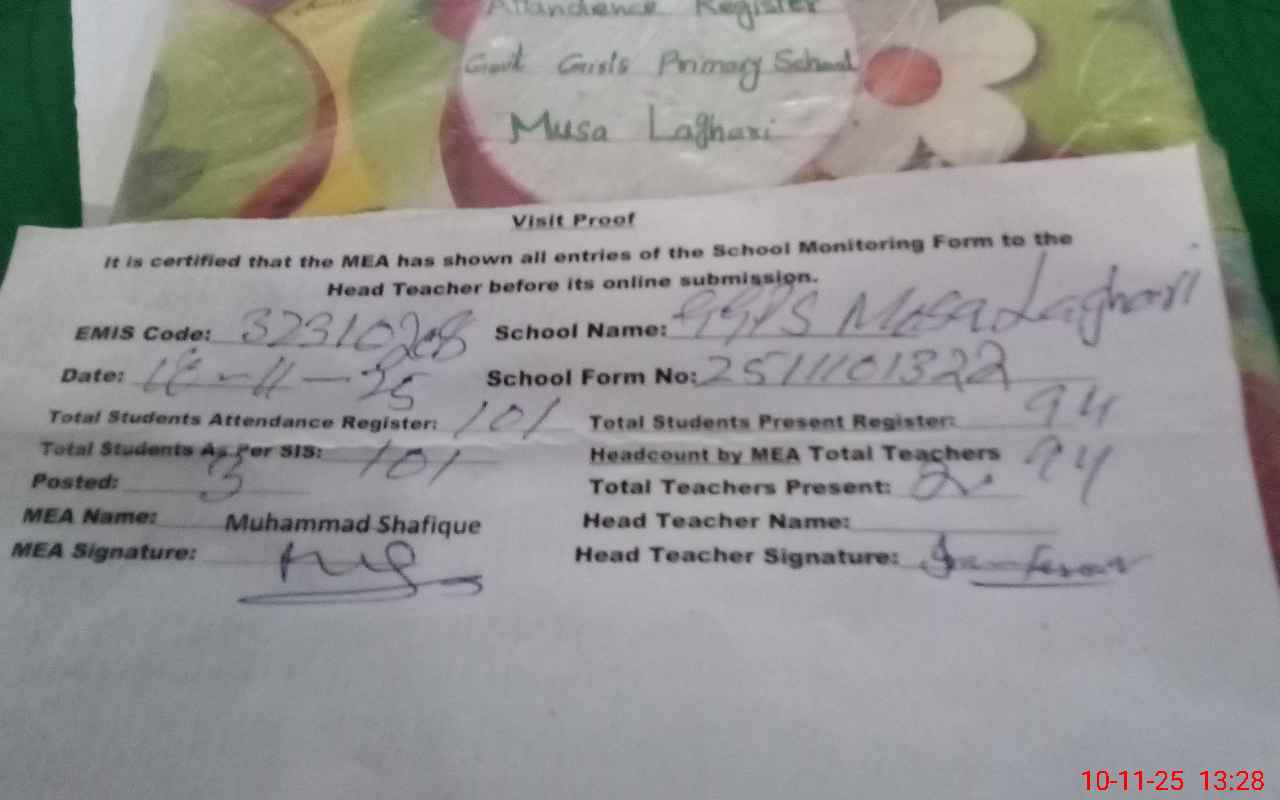 Attandence Register
Govt Girls Primary School
Musa Laghari
Visit Proof
It is certified that the MEA has shown all entries of the School Monitoring Form to the
Head Teacher before its online submission.
EMIS Code: 32310208 School Name: GGPS Musa Laghari
Date: 18-11-25 School Form No: 2511101322
Total Students Attendance Register: 101 Total Students Present Register: 94
Total Students As Per SIS: 101 Headcount by MEA Total Teachers 94
Posted: 3 Total Teachers Present: 2
MEA Name: Muhammad Shafique Head Teacher Name:
MEA Signature: Head Teacher Signature:
10-11-25 13:28